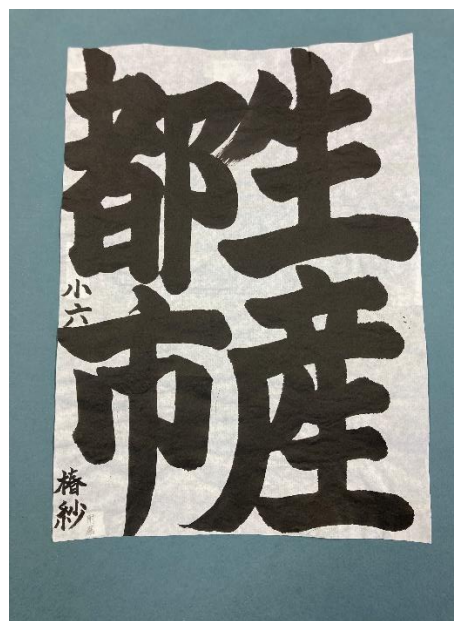 生産
都市
小六
椿紗